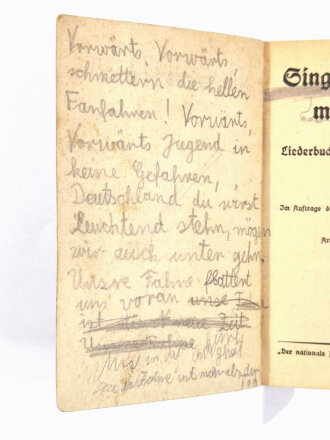 Vorwärts, Vorwärts,
schmettern die hellen
Fanfahren! Vorwärts,
Vorwärts Jugend in
keine Gefahren,
Deutschland du wirst
leuchtend stehn, mögen
wir auch unter gehn
Unsre Fahne flattert
uns voran
Sing
m
Liederbuch
Im Auftrage d
„Der nationale